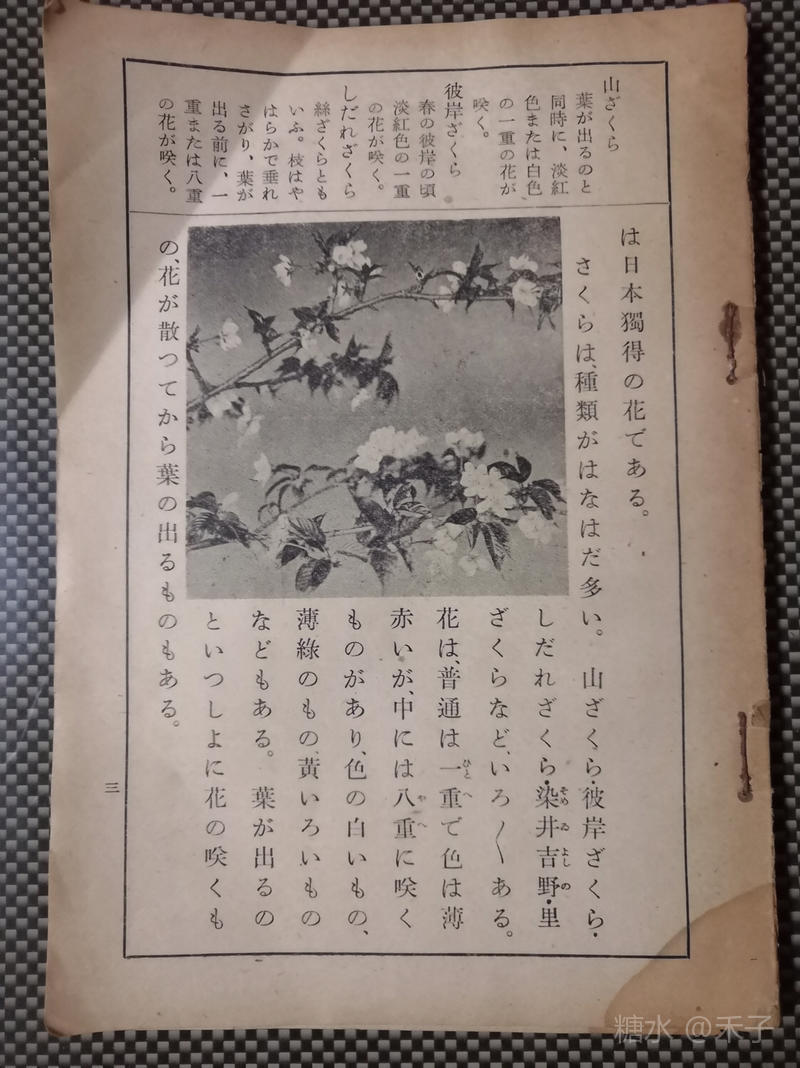 山ざくら
葉が出るのと
同時に、淡紅
色または白色
の一重の花が
咲く。
彼岸ざくら
春の彼岸の頃
淡紅色の一重
の花が咲く。
しだれざくら
絲ざくらとも
いふ。枝はや
はらかで垂れ
さがり、葉が
出る前に、一
重または八重
の花が咲く。
は日本獨得の花である。
さくらは、種類がはなはだ多い。山ざくら・彼岸ざくら・
しだれざくら・染井吉野・里
そめゐよしの
ざくらなど、いろ〱ある。
花は、普通は一重で色は薄
ひとへ
赤いが、中には八重に咲く
やへ
ものがあり、色の白いもの、
薄綠のもの、黃いろいもの
などもある。葉が出るの
といつしよに花の咲くも
の、花が散つてから葉の出るものもある。
三
糖水 @禾子